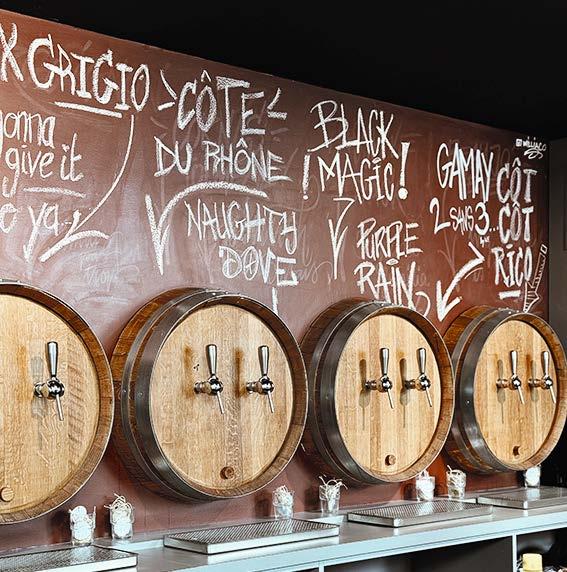 X GRIGIO
gonna
give it
o ya...
CÔTE
DU RHÔNE
NAUGHTY
DOVE
BLACK
MAGIC!
PURPLE
RAIN
GAMAY
2 SANS 3...
CÔT
CÔT
RICO